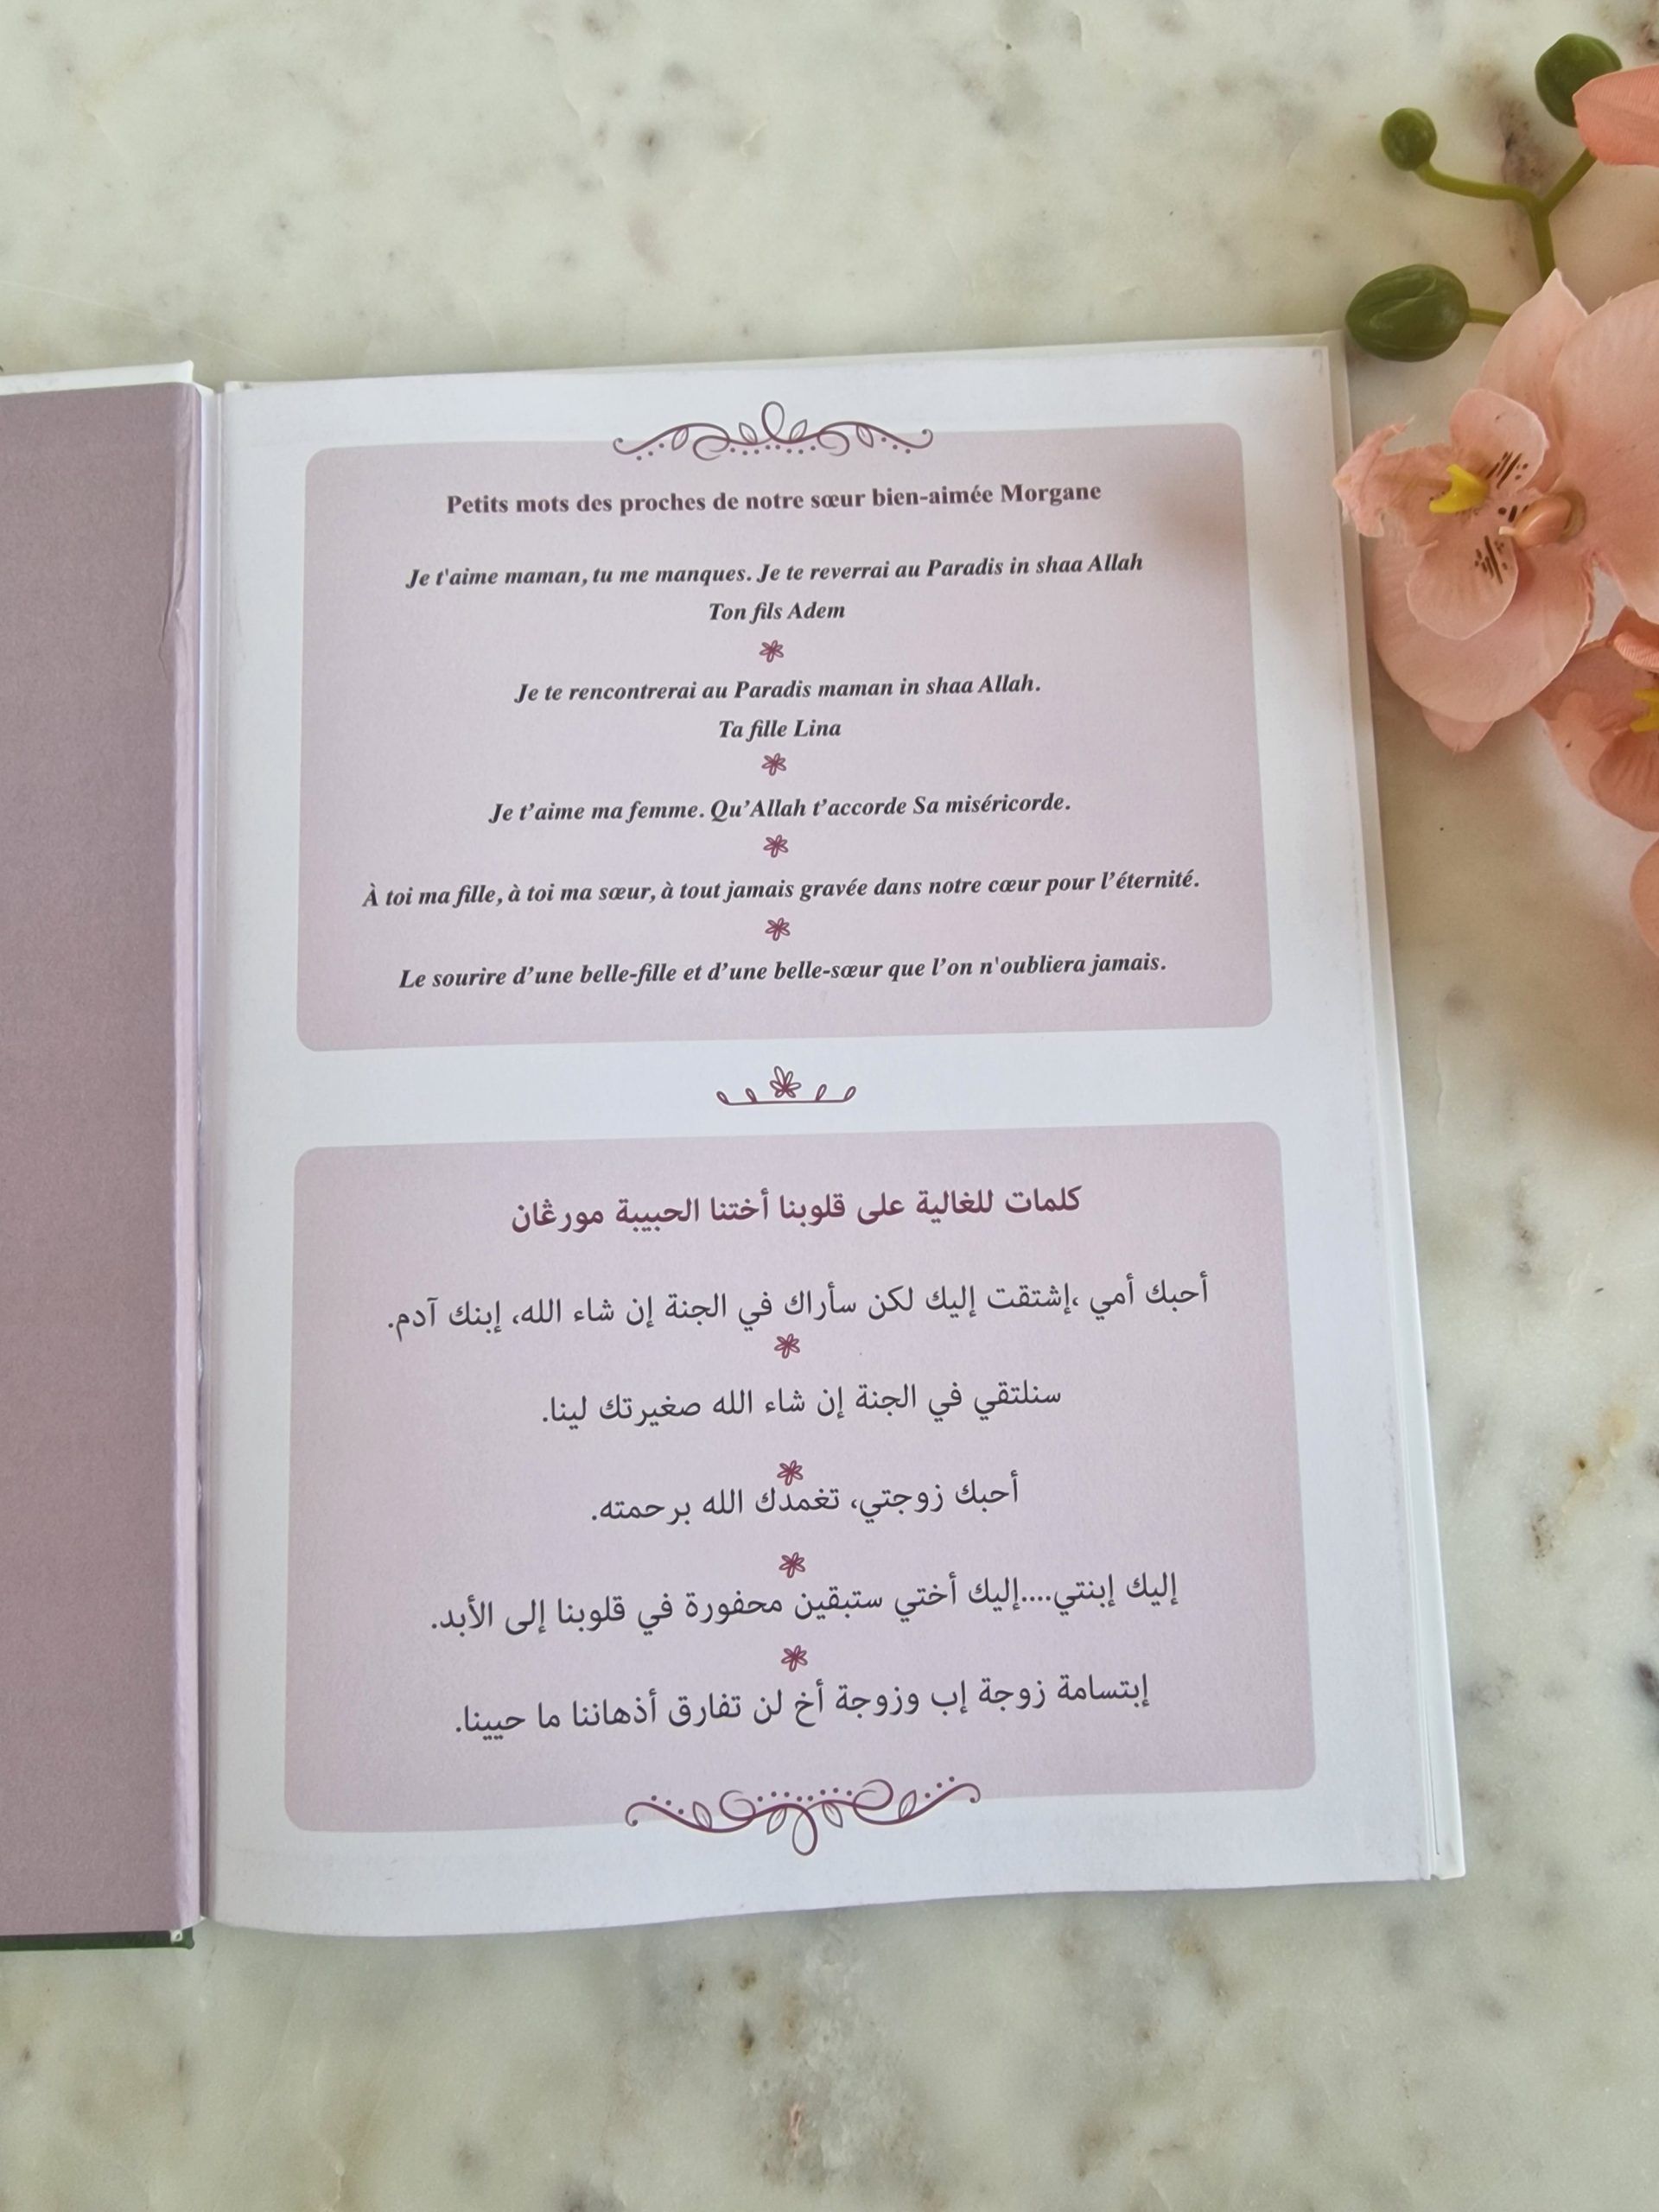 Petits mots des proches de notre sœur bien-aimée Morgane
Je t'aime maman, tu me manques. Je te reverrai au Paradis in shaa Allah
Ton fils Adem
Je te rencontrerai au Paradis maman in shaa Allah.
Ta fille Lina
Je t’aime ma femme. Qu’Allah t’accorde Sa miséricorde.
À toi ma fille, à toi ma sœur, à tout jamais gravée dans notre cœur pour l’éternité.
Le sourire d’une belle-fille et d’une belle-sœur que l’on n'oubliera jamais.
كلمات للغالية على قلوبنا أختنا الحبيبة مورڠان
أحبك أمي ،إشتقت إليك لكن سأراك في الجنة إن شاء الله، إبنك آدم.
سنلتقي في الجنة إن شاء الله صغيرتك لينا.
أحبك زوجتي، تغمدك الله برحمته.
إليك إبنتي....إليك أختي ستبقين محفورة في قلوبنا إلى الأبد.
إبتسامة زوجة إب وزوجة أخ لن تفارق أذهاننا ما حيينا.